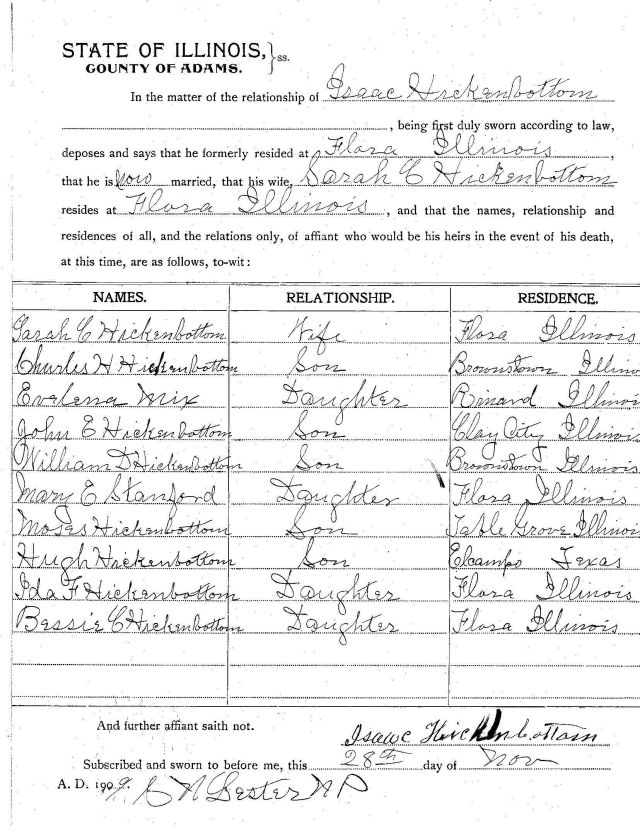 STATE OF ILLINOIS, } ss.
COUNTY OF ADAMS.
In the matter of the relationship of Isaac Hickenbottom
, being first duly sworn according to law,
deposes and says that he formerly resided at Flora Illinois,
that he is now married, that his wife, Sarah C Hickenbottom
resides at Flora Illinois, and that the names, relationship and
residences of all, and the relations only, of affiant who would be his heirs in the event of his death,
at this time, are as follows, to-wit:
NAMES. RELATIONSHIP. RESIDENCE.
Sarah C Hickenbottom Wife Flora Illinois
Charles H Hickenbottom Son Brownstown Illino
Evelena Mix Daughter Illinois
John E Hickenbottom Son Clay City Illinois
William D Hickenbottom Son Brownstown Illinois
Mary E Stanford Daughter Flora Illinois
Moses Hickenbottom Son Table Grove Illinois
Hugh Hickenbottom Son Elcampo Texas
Ida F Hickenbottom Daughter Flora Illinois
Bessie C Hickenbottom Daughter Flora Illinois
And further affiant saith not.
Isaac Hickenbottom
Subscribed and sworn to before me, this 28th day of Nov
A. D. 1909. C N Lester N P